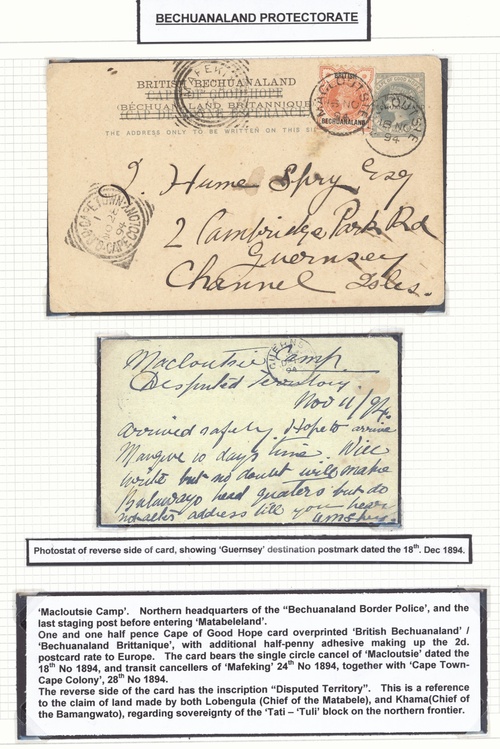 BECHUANALAND PROTECTORATE
BRITISH BECHUANALAND
CAPE OF GOOD HOPE
BÉCHUANALAND BRITANNIQUE
THE ADDRESS ONLY TO BE WRITTEN ON THIS SI
BRITISH
BECHUANALAND
MACLOUTSIE
18 NO
94
CLOUTSIE
18 NO
94
CAPE TOWN
NO 28
94
J. Hume Spry Esq
2 Cambridge Park Rd
Guernsey
Channel Isles.
GUERNS
94
Macloutsie Camp.
Disputed Territory.
Nov 11/94.
arrived safely. Hope to arrive
Mangwe 10 days time. Will
write but no doubt will make
Bulawayo head quaters but do
not alter address till you hear
Photostat of reverse side of card, showing 'Guernsey' destination postmark dated the 18th. Dec 1894.
'Macloutsie Camp'. Northern headquarters of the "Bechuanaland Border Police', and the
last staging post before entering 'Matabeleland'.
One and one half pence Cape of Good Hope card overprinted 'British Bechuanaland' /
'Bechuanaland Brittanique', with additional half-penny adhesive making up the 2d.
postcard rate to Europe. The card bears the single circle cancel of 'Macloutsie' dated the
18th No 1894, and transit cancellers of 'Mafeking' 24th No 1894, together with 'Cape Town-
Cape Colony', 28th No 1894.
The reverse side of the card has the inscription "Disputed Territory". This is a reference
to the claim of land made by both Lobengula (Chief of the Matabele), and Khama(Chief of
the Bamangwato), regarding sovereignty of the 'Tati – 'Tuli' block on the northern frontier.